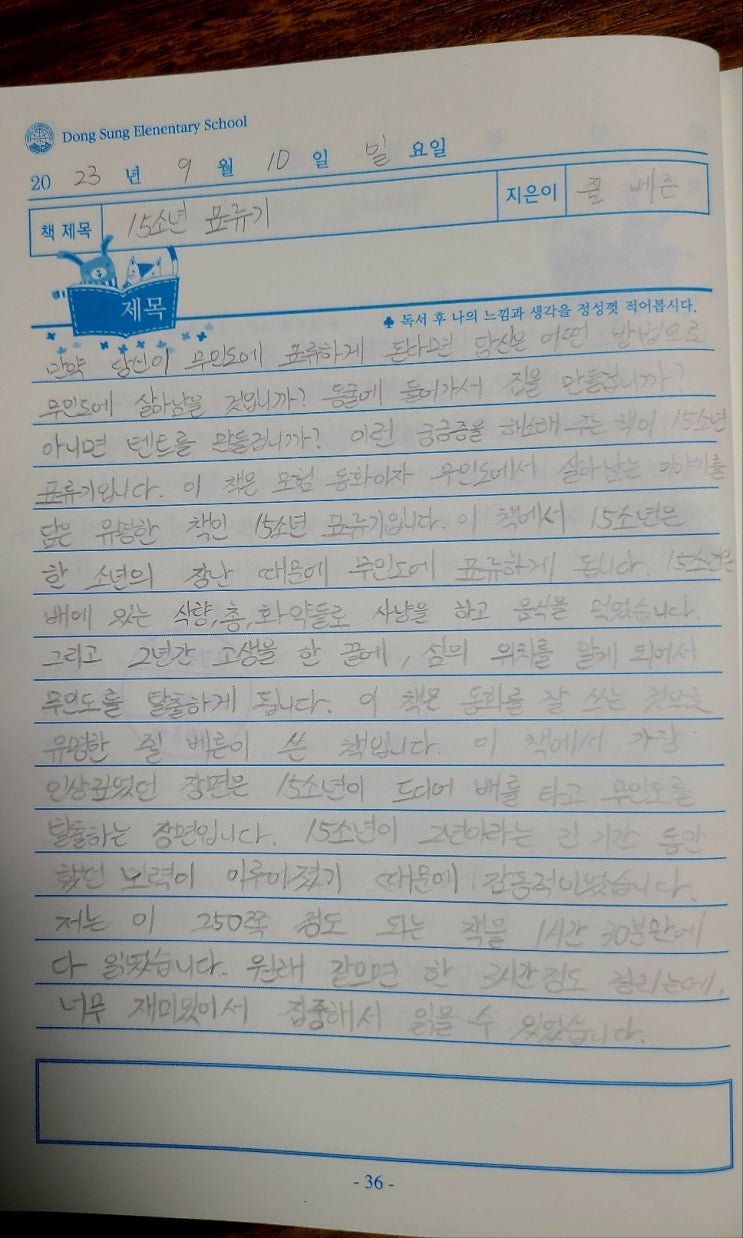 Dong Sung Elenentary School
2023년 9월 10일 일요일
책 제목 15소년 표류기 지은이 쥘 베른
제목
♣ 독서 후 나의 느낌과 생각을 정성껏 적어봅시다.
만약 당신이 무인도에 표류하게 된다면 당신은 어떤 방법으로
무인도에 살아남을 것입니까? 동굴에 들어가서 집을 만들겁니까?
아니면 텐트를 만들겁니까? 이런 궁금증을 해소해 주는 책이 15소년
표류기입니다. 이 책은 모험 동화이자 무인도에서 살아남는 이야기를
담은 유명한 책인 15소년 표류기입니다. 이 책에서 15소년은
한 소년의 장난 때문에 무인도에 표류하게 됩니다. 15소년은
배에 있는 식량, 총, 화약들로 사냥을 하고 음식을 먹었습니다.
그리고 2년간 고생을 한 끝에, 섬의 위치를 알게 되어서
무인도를 탈출하게 됩니다. 이 책은 동화를 잘 쓰는 것으로
유명한 쥘 베른이 쓴 책입니다. 이 책에서 가장
인상깊었던 장면은 15소년이 드디어 배를 타고 무인도를
탈출하는 장면입니다. 15소년이 2년이라는 긴 기간 동안
했던 노력이 이루어졌기 때문에 감동적이였습니다.
저는 이 250쪽 정도 되는 책을 1시간 30분만에
다 읽었습니다. 원래 같으면 한 3시간 정도 걸리는데,
너무 재미있어서 집중해서 읽을 수 있었습니다.
- 36 -